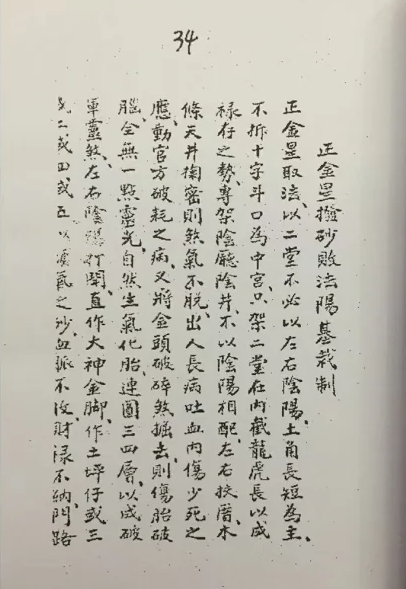 34
正金星撥砂敗法陽基裁制
正金星取法、以二堂不必以左右陰陽、土角長短為主、
不拆十字斗口為中宮、只架二堂在內截龍虎長以成
祿存之勢、專架陰廳陰井、不以陰陽相配、左右挾厝木
條天井掏密則煞氣不脫、出人長病吐血內傷少死之
應、動官方破耗之病、又將金頭破碎煞掘去、則傷胎破
腦全無一點靈光、自然生氣化胎、連圓三四層、以成破
軍靈煞、左右陰陽打開、直作大神金腳、作土坪仔或三
或二或四或五、以煞氣之沙、血脈不收、財祿不納、門路